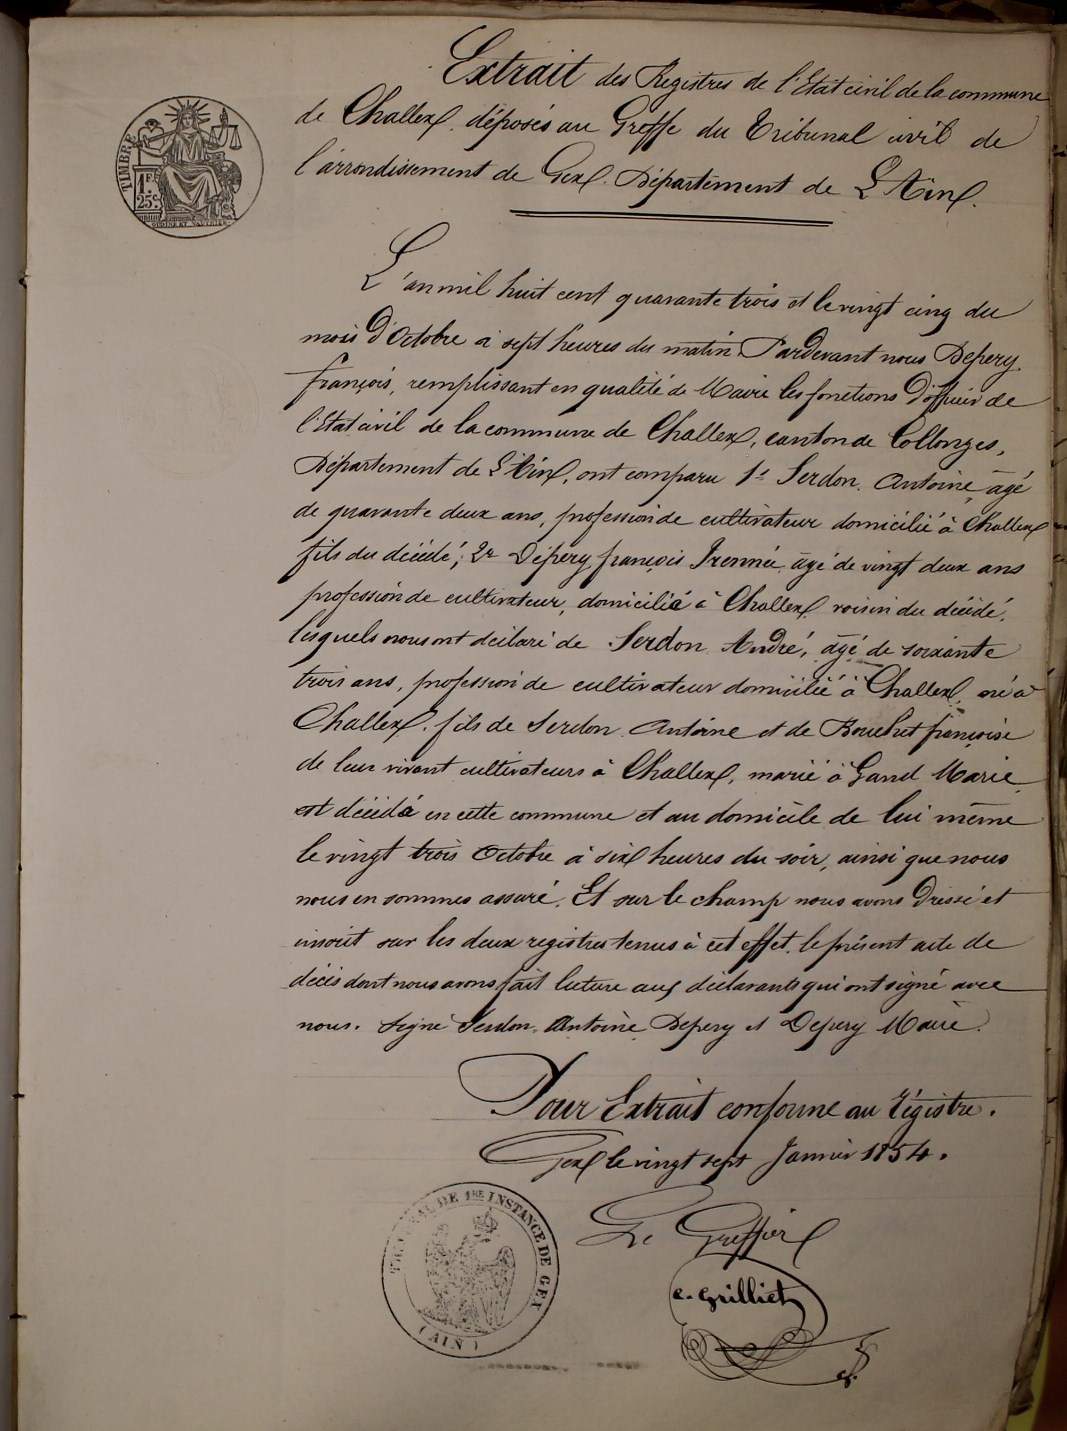 Extrait des Registres de l'Etat civil de la commune
de Challex, déposés au Greffe du Tribunal civil de
l'arrondissement de Gex. Département de L'Ain.
TIMBRE
1 Fr
25 c.
L'an mil huit cent quarante trois et le vingt cinq du
mois d'Octobre à sept heures du matin. Pardevant nous Depery
françois, remplissant en qualité de Maire les fonctions d'officier de
l'Etat civil de la commune de Challex, canton de Collonges,
Département de L'Ain, ont comparu 1° Serdon Antoine âgé
de quarante deux ans, profession de cultivateur domicilié à Challex
fils du décédé; 2° Dépery françois Irennée âgé de vingt deux ans
profession de cultivateur, domicilié à Challex voisin du décédé,
lesquels nous ont déclaré de Serdon André, âgé de soixante
trois ans, profession de cultivateur domicilié à Challex, né à
Challex, fils de Serdon Antoine et de Bouchet françoise
de leur vivant cultivateurs à Challex, marié à Gand Marie,
est décédé en cette commune et au domicile de lui même
le vingt trois Octobre à six heures du soir, ainsi que nous
nous en sommes assuré. Et sur le champ nous avons dressé et
inscrit sur les deux registres tenus à cet effet le présent acte de
décès dont nous avons fait lecture aux déclarants qui ont signé avec
nous. Signé Serdon Antoine Depery et Depery Maire.
Pour Extrait conforme au régistre.
Gex le vingt sept Janvier 1854.
TRIBUNAL DE 1RE INSTANCE DE GEX
(AIN)
Le Greffier
C. Grilliet